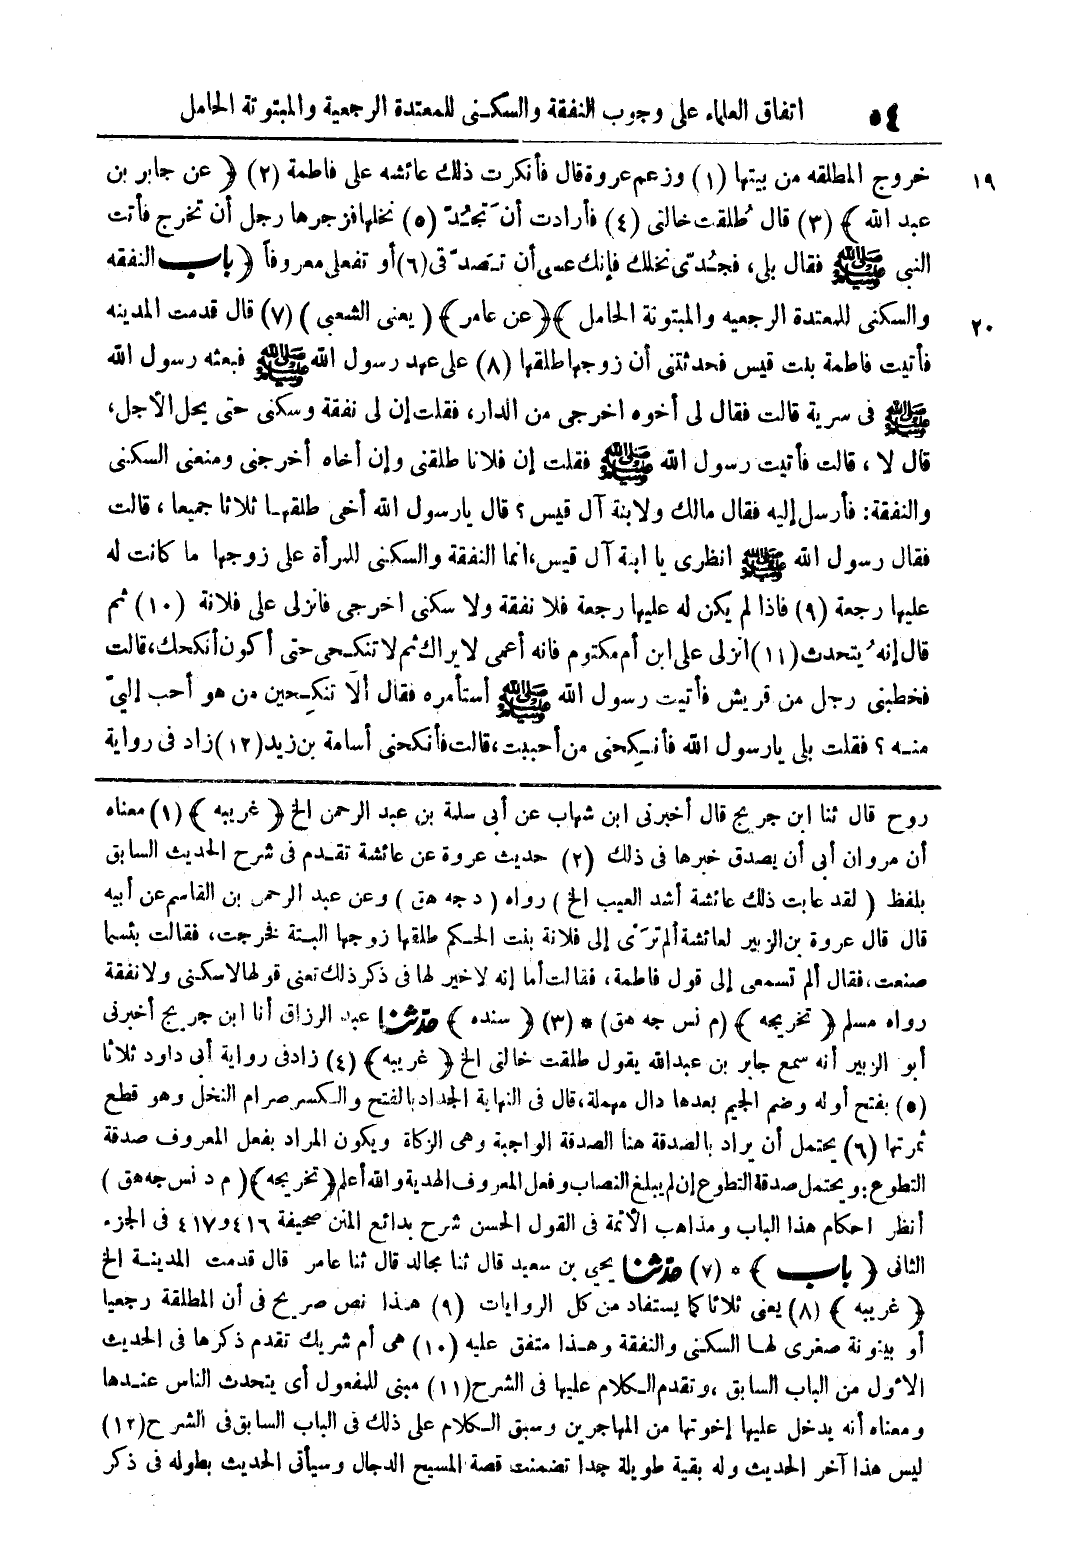 ٥٤ اتفاق العلماء على وجوب النفقة والسكنى للمعتدة الرجعية والمبتوتة الحامل
١٩ خروج المطلقه من بيتها (١) وزعم عروة قال فأنكرت ذلك عائشه على فاطمة (٢) ﴿ عن جابر بن
عبد الله ﴾ (٣) قال طُلقت خالتى (٤) فأرادت أن تَجُدّ (٥) نخلها فزجرها رجل أن تخرج فأتت
النبى ﷺ فقال بلى، فجُدّى نخلك فإنك عسى أن تتصدّقى (٦) أو تفعلى معروفاً ﴿ باب النفقه
٢٠ والسكنى للمعتدة الرجعيه والمبتوتة الحامل ﴾ ﴿ عن عامر ﴾ ( يعنى الشعبى ) (٧) قال قدمت المدينه
فأتيت فاطمة بنت قيس فحدثتنى أن زوجها طلقها (٨) على عهد رسول الله ﷺ فبعثه رسول الله
ﷺ فى سرية قالت فقال لى أخوه اخرجى من الدار، فقلت إن لى نفقة وسكنى حتى يحل الأجل،
قال لا ، قالت فأتيت رسول الله ﷺ فقلت إن فلانا طلقنى وإن أخاه أخرجنى ومنعنى السكنى
والنفقة: فأرسل إليه فقال مالك ولابنة آل قيس؟ قال يارسول الله أخى طلقها ثلاثا جميعا ، قالت
فقال رسول الله ﷺ انظرى يا ابنة آل قيس، انما النفقة والسكنى للمرأة على زوجها ما كانت له
عليها رجعة (٩) فاذا لم يكن له عليها رجعة فلا نفقة ولا سكنى اخرجى فانزلى على فلانة (١٠) ثم
قال إنه يُتحدث (١١) انزلى على ابن أم مكتوم فانه أعمى لايراك ثم لا تنكحى حتى أكون أنكحك، قالت
فخطبنى رجل من قريش فأتيت رسول الله ﷺ أستأمره فقال ألَا تنكحين من هو أحب إلىّ
منه ؟ فقلت بلى يارسول الله فأنكحنى من أحببت، قالت فأنكحنى أسامة بن زيد (١٢) زاد فى رواية
روح قال ثنا ابن جريج قال أخبرنى ابن شهاب عن أبى سلمة بن عبد الرحمن الخ ﴿ غريبه ﴾ (١) معناه
أن مروان أبى أن يصدق خبرها فى ذلك (٢) حديث عروة عن عائشة تقدم فى شرح الحديث السابق
بلفظ ( لقد عابت ذلك عائشة أشد العيب الخ ) رواه ( د جه هق ) وعن عبد الرحمن بن القاسم عن أبيه
قال قال عروة بن الزبير لعائشة ألم ترَى إلى فلانة بنت الحكم طلقها زوجها البتة فخرجت، فقالت بئسما
صنعت، فقال ألم تسمعى إلى قول فاطمة، فقالت أما إنه لاخير لها فى ذكر ذلك تعنى قولها لاسكنى ولا نفقة
رواه مسلم ﴿ تخريجه ﴾ (م نس جه هق) * (٣) ﴿ سنده ﴾ حدثنا عبد الرزاق أنا ابن جريج أخبرنى
أبو الزبير أنه سمع جابر بن عبد الله يقول طلقت خالتى الخ ﴿ غريبه ﴾ (٤) زاد فى رواية أبى داود ثلاثا
(٥) بفتح أوله وضم الجيم بعدها دال مهملة، قال فى النهاية الجداد بالفتح والكسر صرام النخل وهو قطع
ثمرتها (٦) يحتمل أن يراد بالصدقة هنا الصدقة الواجبة وهى الزكاة ويكون المراد بفعل المعروف صدقة
التطوع: ويحتمل صدقة التطوع إن لم يبلغ النصاب وفعل المعروف الهدية والله أعلم ﴿ تخريجه ﴾ ( م د نس جه هق )
أنظر احكام هذا الباب ومذاهب الأئمة فى القول الحسن شرح بدائع المنن صحيفة ٤١٦ و ٤١٧ فى الجزء
الثانى ﴿ باب ﴾ * (٧) حدثنا يحيى بن سعيد قال ثنا مجالد قال ثنا عامر قال قدمت المدينة الخ
﴿ غريبه ﴾ (٨) يعنى ثلاثا كما يستفاد من كل الروايات (٩) هذا نص صريح فى أن المطلقة رجعيا
أو بينونة صغرى لها السكنى والنفقة وهذا متفق عليه (١٠) هى أم شريك تقدم ذكرها فى الحديث
الأول من الباب السابق ، وتقدم الكلام عليها فى الشرح (١١) مبنى للمفعول أى يتحدث الناس عندها
ومعناه أنه يدخل عليها إخوتها من المهاجرين وسبق الكلام على ذلك فى الباب السابق فى الشرح (١٢)
ليس هذا آخر الحديث وله بقية طويلة جدا تضمنت قصة المسيح الدجال وسيأتى الحديث بطوله فى ذكر